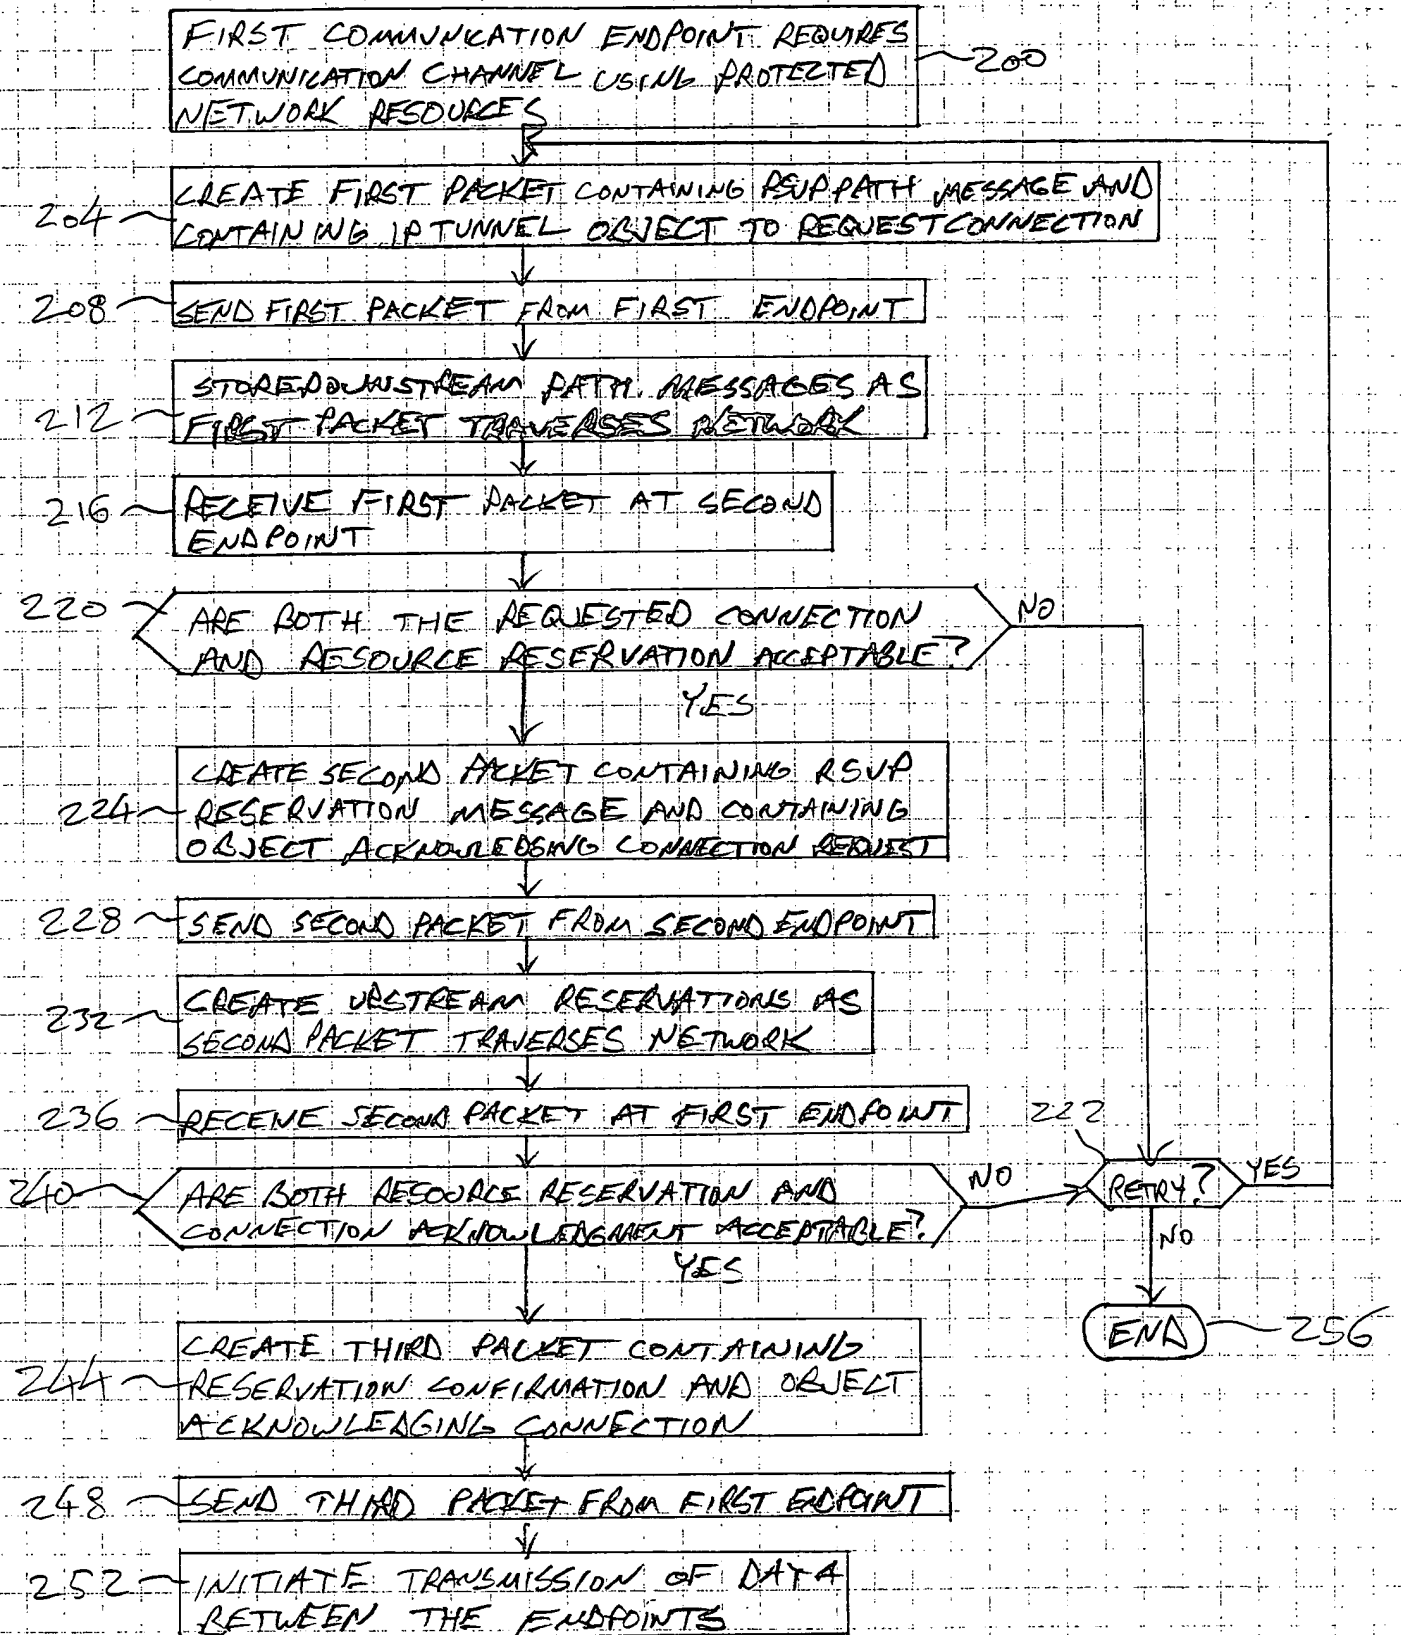 FIRST COMMUNICATION ENDPOINT REQUIRES
COMMUNICATION CHANNEL USING PROTECTED
NETWORK RESOURCES
200
CREATE FIRST PACKET CONTAINING RSVP PATH MESSAGE AND
CONTAINING IP TUNNEL OBJECT TO REQUEST CONNECTION
204
SEND FIRST PACKET FROM FIRST ENDPOINT
208
STORE DOWNSTREAM PATH MESSAGES AS
FIRST PACKET TRAVERSES NETWORK
212
RECEIVE FIRST PACKET AT SECOND
ENDPOINT
216
220
ARE BOTH THE REQUESTED CONNECTION
AND RESOURCE RESERVATION ACCEPTABLE?
NO
YES
CREATE SECOND PACKET CONTAINING RSVP
RESERVATION MESSAGE AND CONTAINING
OBJECT ACKNOWLEDGING CONNECTION REQUEST
224
SEND SECOND PACKET FROM SECOND ENDPOINT
228
CREATE UPSTREAM RESERVATIONS AS
SECOND PACKET TRAVERSES NETWORK
232
RECEIVE SECOND PACKET AT FIRST ENDPOINT
236
222
RETRY?
YES
NO
END
256
240
ARE BOTH RESOURCE RESERVATION AND
CONNECTION ACKNOWLEDGMENT ACCEPTABLE?
NO
YES
CREATE THIRD PACKET CONTAINING
RESERVATION CONFIRMATION AND OBJECT
ACKNOWLEDGING CONNECTION
244
SEND THIRD PACKET FROM FIRST ENDPOINT
248
INITIATE TRANSMISSION OF DATA
BETWEEN THE ENDPOINTS
252